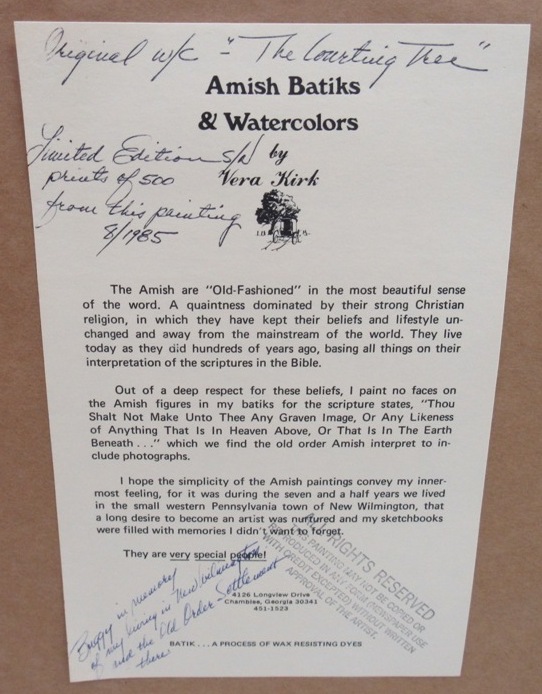 Original w/c - "The Courting Tree"
Amish Batiks
& Watercolors
Limited Edition s/n
prints of 500
from this painting
8/1985
by
Vera Kirk
The Amish are "Old-Fashioned" in the most beautiful sense
of the word. A quaintness dominated by their strong Christian
religion, in which they have kept their beliefs and lifestyle un-
changed and away from the mainstream of the world. They live
today as they did hundreds of years ago, basing all things on their
interpretation of the scriptures in the Bible.
Out of a deep respect for these beliefs, I paint no faces on
the Amish figures in my batiks for the scripture states, "Thou
Shalt Not Make Unto Thee Any Graven Image, Or Any Likeness
of Anything That Is In Heaven Above, Or That Is In The Earth
Beneath . . ." which we find the old order Amish interpret to in-
clude photographs.
I hope the simplicity of the Amish paintings convey my inner-
most feeling, for it was during the seven and a half years we lived
in the small western Pennsylvania town of New Wilmington, that
a long desire to become an artist was nurtured and my sketchbooks
were filled with memories I didn't want to forget.
They are very special people!
4126 Longview Drive
Chamblee, Georgia 30341
451-1523
ALL RIGHTS RESERVED
PAINTING MAY NOT BE COPIED OR
REPRODUCED IN ANY FORM (NEWSPAPER USE
WITH CREDIT EXCEPTED) WITHOUT WRITTEN
APPROVAL OF THE ARTIST.
Buggy in memory
of my living in New Wilmington
and the Old Order Settlement
there
BATIK . . . A PROCESS OF WAX RESISTING DYES